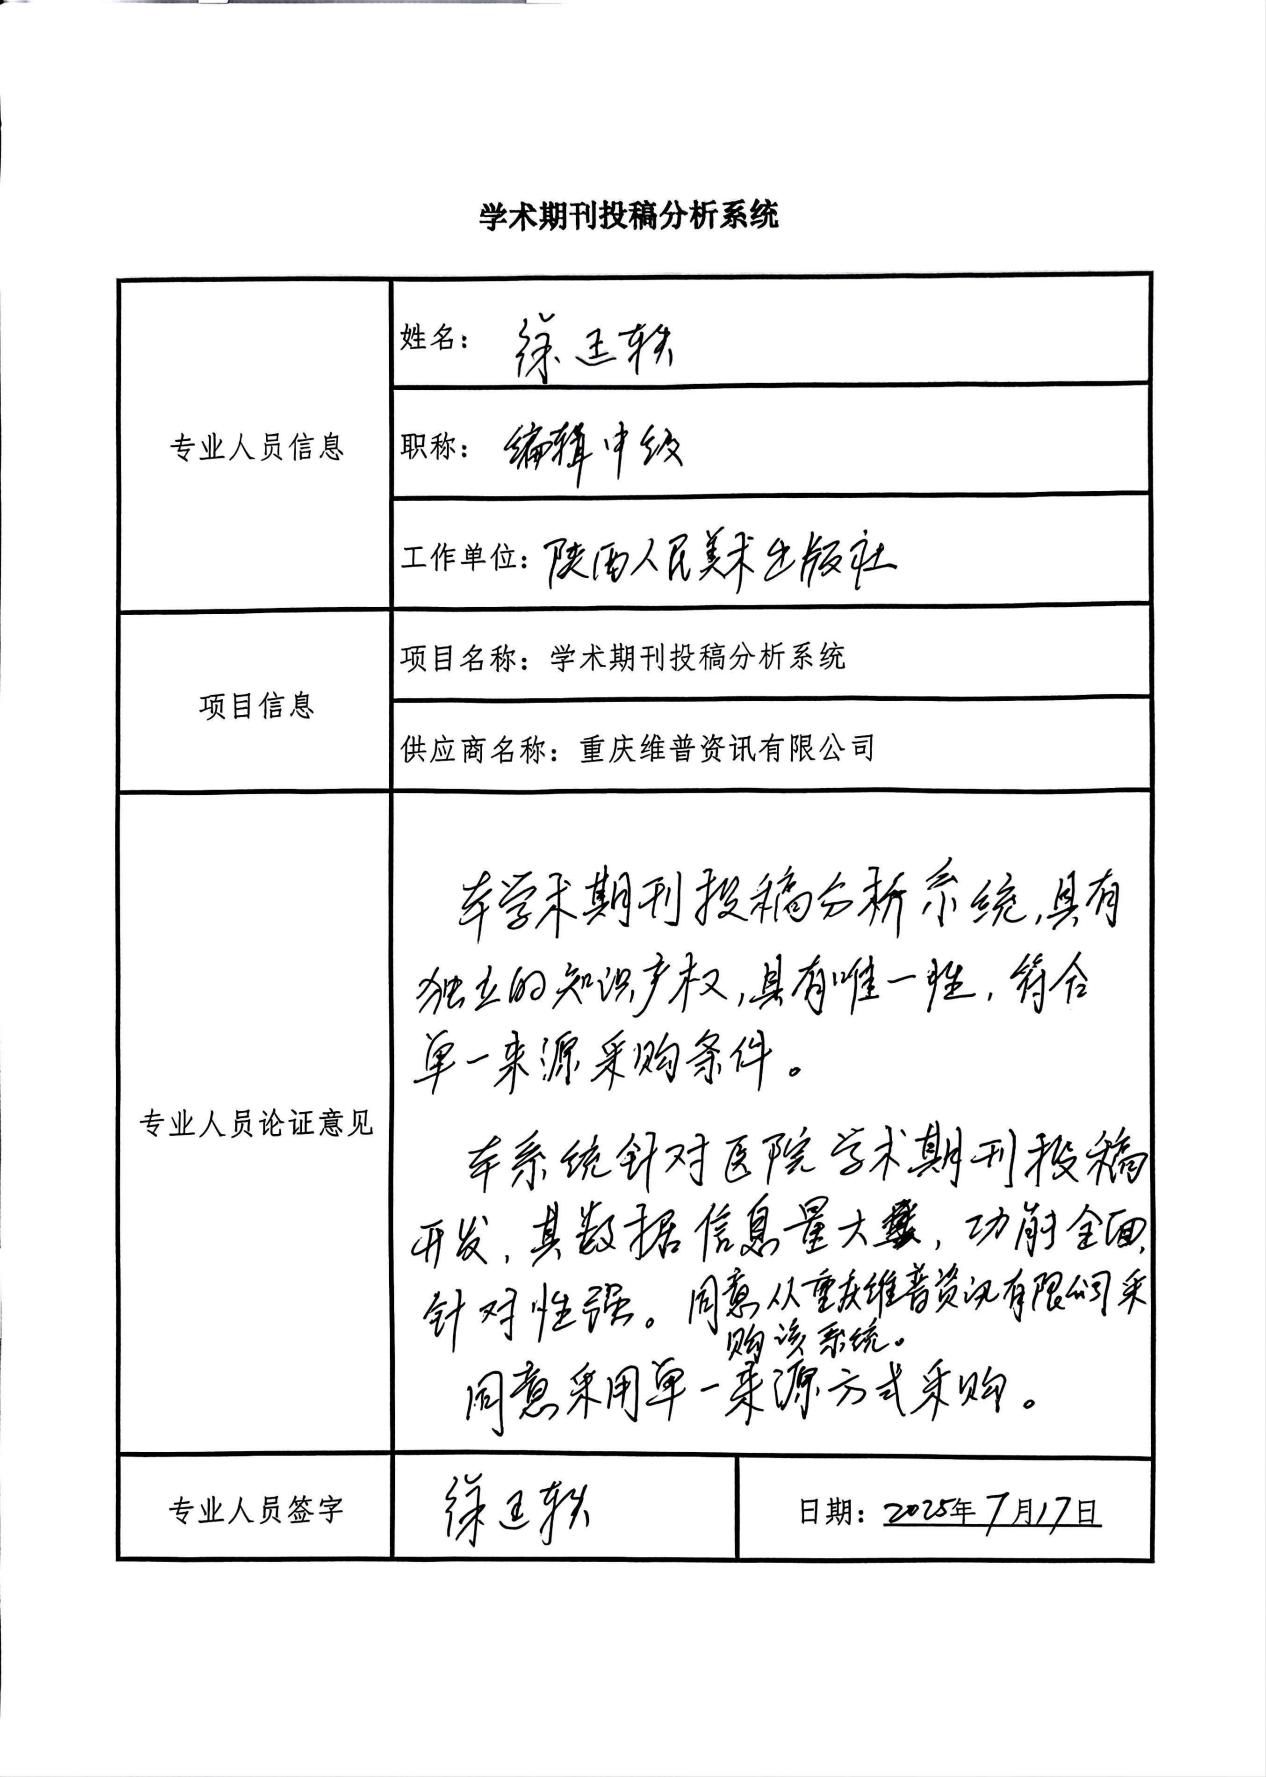 学术期刊投稿分析系统
专业人员信息
姓名： 徐 轶
职称： 编辑中级
工作单位：陕西人民美术出版社
项目信息
项目名称：学术期刊投稿分析系统
供应商名称：重庆维普资讯有限公司
专业人员论证意见
本学术期刊投稿分析系统,具有
独立的知识产权,具有唯一性,符合
单一来源采购条件。
本系统针对医院学术期刊投稿
开发,其数据信息量大,功能全面,
针对性强。同意从重庆维普资讯有限公司采
购该系统。
同意采用单一来源方式采购。
专业人员签字
徐 轶
日期：2025年7月17日